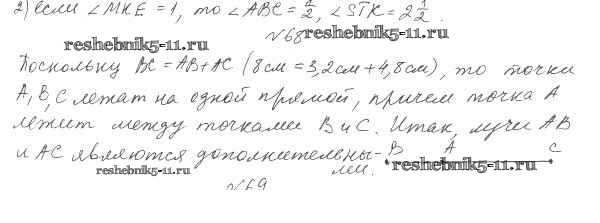 2) если ∠MKE = 1, то ∠ABC = 1/2, ∠STK = 2 1/2.
№68 reshebnik5-11.ru
reshebnik5-11.ru
Поскольку BC = AB + AC (8 см = 3,2 см + 4,8 см), то точки
A, B, C лежат на одной прямой, причем точка A
лежит между точками B и C. Итак, лучи AB
и AC являются дополнительны-
ми.
B A C
reshebnik5-11.ru
reshebnik5-11.ru
№69